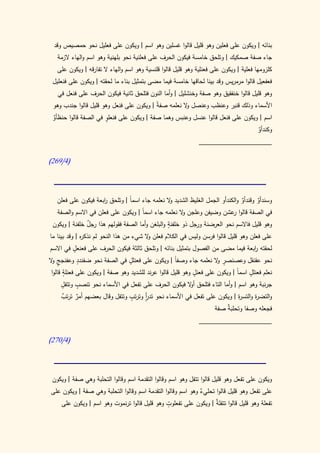 بناته | ويكون على فعلين وهو قليل قالوا غسلين وهو اسم | ويكون على فعليل نحو حمصيص وقد
جاء صفة صمكيك | وتلحق خامسة فيكون الحرف على فعلنية نحو بلهنية وهو اسم والهاء لازمة
كلزومها فعلية | ويكون على فعنلية وهو قليل قالوا قلنسية وهو اسم والهاء لا تفارقه | ويكون على
فعفعيل قالوا مرمريس وقد بينا لحاقها خامسة فيما مضى بتمثيل بناء ما لحقته | ويكون على فنعليل
وهو قليل قالوا خنفقيق وهو صفة وخنشليل | وأما النون فتلحق ثانية فيكون الحرف على فنعل في
الأسماء وذلك قنبر وعنظب وعنصل ولا نعلمه صفةً | ويكون على فنعل وهو قليل قالوا جندب وهو
اسم | ويكون على فنعل قالوا عنسل وعنبس وهما صفة | ويكون على فنعلو في الصفة قالوا حنظأوٌ
وكندأوٌ
(269/4)
وسندأوٌ وقندأوٌ والكندأو الجمل الغليظ الشديد ولا نعلمه جاء اسماً | وتلحق رابعة فيكون على فعلن
في الصفة قالوا رعشن وضيفن وعلجن ولا نعلمه جاء اسماً | ويكون على فعلن في الاسم والصفة
وهو قليل فالاسم نحو العرضنة ورجل ذو خلفنة والبلغن وأما الصفة فقولهم هذا رجلٌ خلفنة | ويكون
على فعلن وهو قليل قالوا فرسن وليس في الكلام فعلن ولا شيء من هذا النحو لم نذكره | وقد بينا ما
لحقته رابعة فيما مضى من الفصول بتمثيل بنائه | وتلحق ثالثة فيكون الحرف على فعنعل في الاسم
نحو عقنقل وعصنصر ولا نعلمه جاء وصفاً | ويكون على فعنلل في الصفة نحو ضفنددٍ وعفنججٍ ولا
نعلم فعنلل اسماً | ويكون على فعنلٍ وهو قليل قالوا عرند للشديد وهو صفة | ويكون على فعنلة قالوا
جرنبة وهو اسم | وأما التاء فتلحق أولا فيكون الحرف على تفعل في الأسماء نحو تنضبٍ وتتفلٍ
والتضرة والتسرة | ويكون على تفعل في الأسماء نحو تدرأٍ وترتبٍ وتتفل وقال بعضهم أمرٌ ترتبٌ
فجعله وصفا وتحلبةٌ صفة
(270/4)
ويكون على تفعل وهو قليل قالوا تتفل وهو اسم وقالوا التقدمة اسم وقالوا التحلبة وهي صفة | ويكون
على تفعل وهو قليل قالوا تحلىءٌ وهو اسم وقالوا التقدمة اسم وقالوا التحلبة وهي صفة | ويكون على
تفعلة وهو قليل قالوا تتفلةٌ | ويكون على تفعلوت وهو قليل قالوا ترنموت وهو اسم | ويكون على